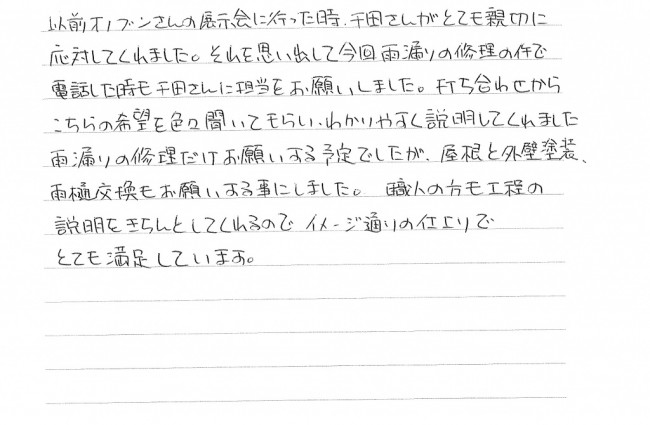 以前オノブンさんの展示会に行った時、千田さんがとても親切に
応対してくれました。それを思い出して今回雨漏りの修理の件で
電話した時も千田さんに担当をお願いしました。打ち合わせから
こちらの希望を色々聞いてもらい、わかりやすく説明してくれました
雨漏りの修理だけお願いする予定でしたが、屋根と外壁塗装、
雨樋交換もお願いする事にしました。 職人の方も工程の
説明をきちんとしてくれるので イメージ通りの仕上りで
とても満足しています。